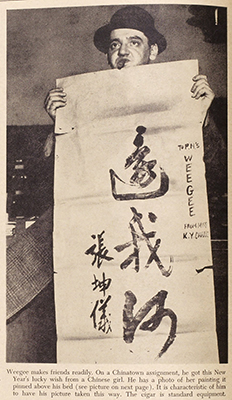 還我河
張坤儀
TO P.M'S
WEEGEE
FROM MISS
K.Y. CHANG
Weegee makes friends readily. On a Chinatown assignment, he got this New
Year's lucky wish from a Chinese girl. He has a photo of her painting it
pinned above his bed (see picture on next page). It is characteristic of him
to have his picture taken this way. The cigar is standard equipment.